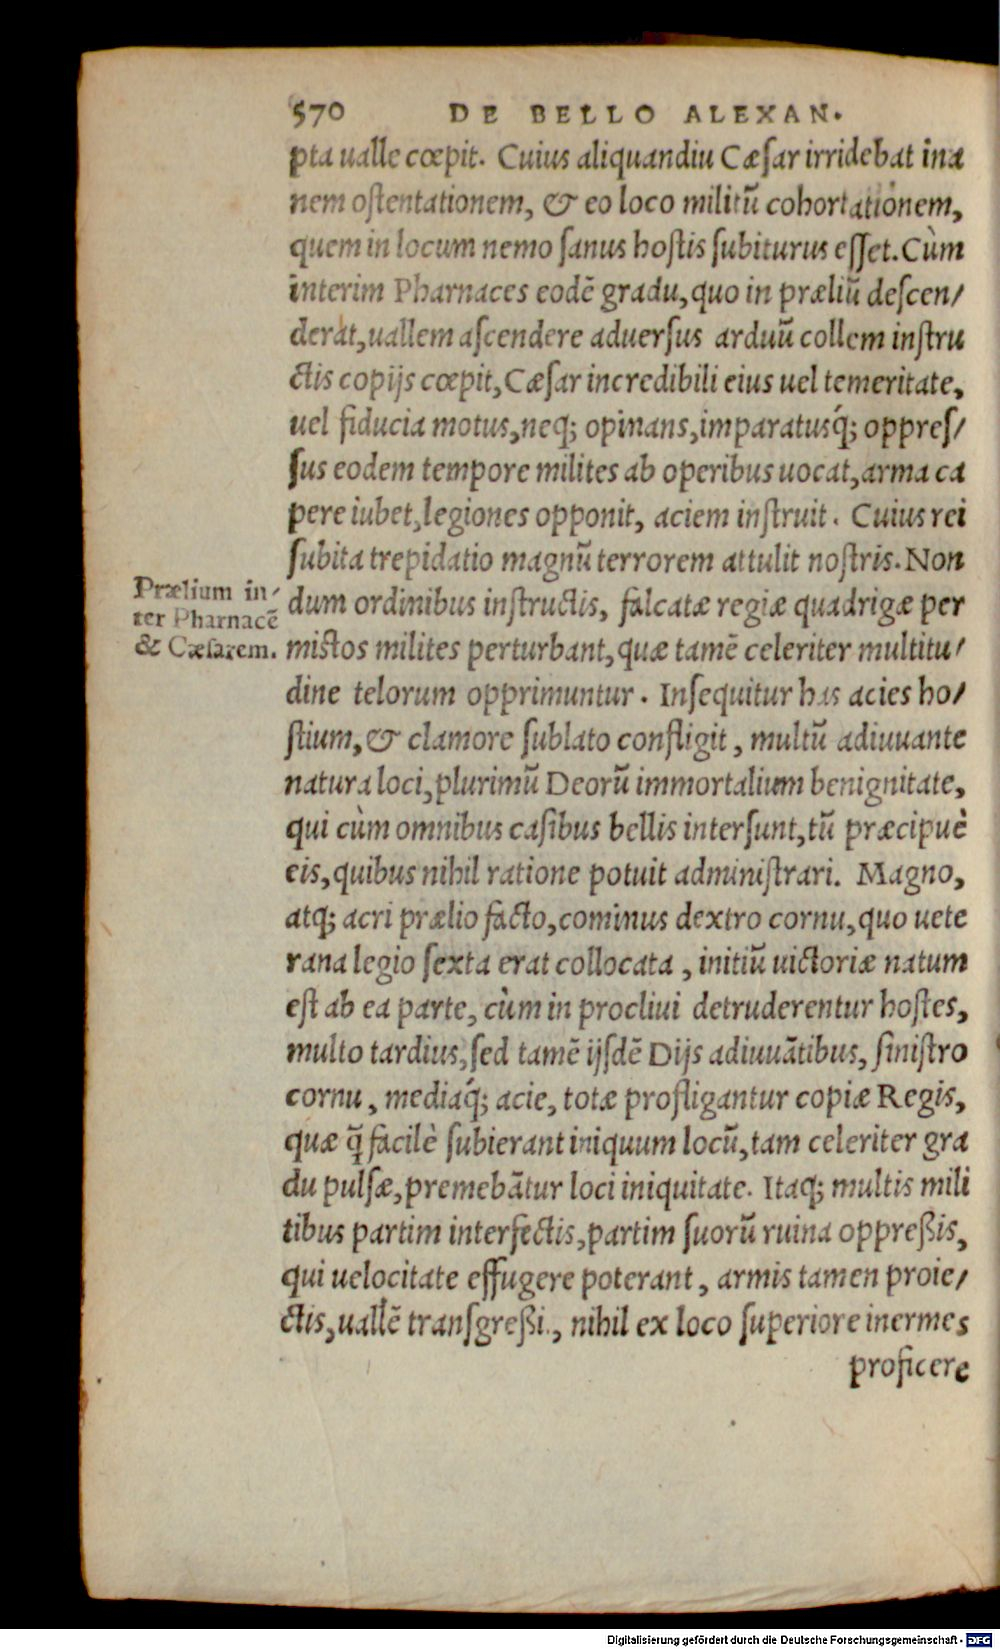 570 DE BELLO ALEXAN.
pta ualle cœpit. Cuius aliquandiu Cæſar irridebat ina
nem oſtentationem, & eo loco militũ cohortationem,
quem in locum nemo ſanus hoſtis ſubiturus eſſet. Cùm
interim Pharnaces eodẽ gradu, quo in præliũ deſcen/
derat, uallem aſcendere aduerſus arduũ collem inſtru
ctis copijs cœpit, Cæſar incredibili eius uel temeritate,
uel fiducia motus, neq; opinans, imparatusq́; oppreſ/
ſus eodem tempore milites ab operibus uocat, arma ca
pere iubet, legiones opponit, aciem inſtruit. Cuius rei
ſubita trepidatio magnũ terrorem attulit noſtris. Non
dum ordinibus inſtructis, falcatæ regiæ quadrigæ per
mistos milites perturbant, quæ tamẽ celeriter multitu/
dine telorum opprimuntur. Inſequitur has acies ho/
ſtium, & clamore ſublato confligit, multũ adiuuante
natura loci, plurimũ Deorũ immortalium benignitate,
qui cùm omnibus caſibus bellis interſunt, tũ præcipuè
eis, quibus nihil ratione potuit adminiſtrari. Magno,
atq; acri prælio facto, cominus dextro cornu, quo uete
rana legio ſexta erat collocata, initiũ uictoriæ natum
eſt ab ea parte, cùm in procliui detruderentur hoſtes,
multo tardius, ſed tamẽ ijſdẽ Dijs adiuuãtibus, ſiniſtro
cornu, mediaq́; acie, totæ profligantur copiæ Regis,
quæ q̃ facilè ſubierant iniquum locũ, tam celeriter gra
du pulſæ, premebãtur loci iniquitate. Itaq; multis mili
tibus partim interfectis, partim ſuorũ ruina oppreßis,
qui uelocitate effugere poterant, armis tamen proie/
ctis, uallẽ tranſgreßi, nihil ex loco ſuperiore inermes
proficere
Prælium in/
ter Pharnacẽ
& Cæſarem.
Digitalisierung gefördert durch die Deutsche Forschungsgemeinschaft - DFG